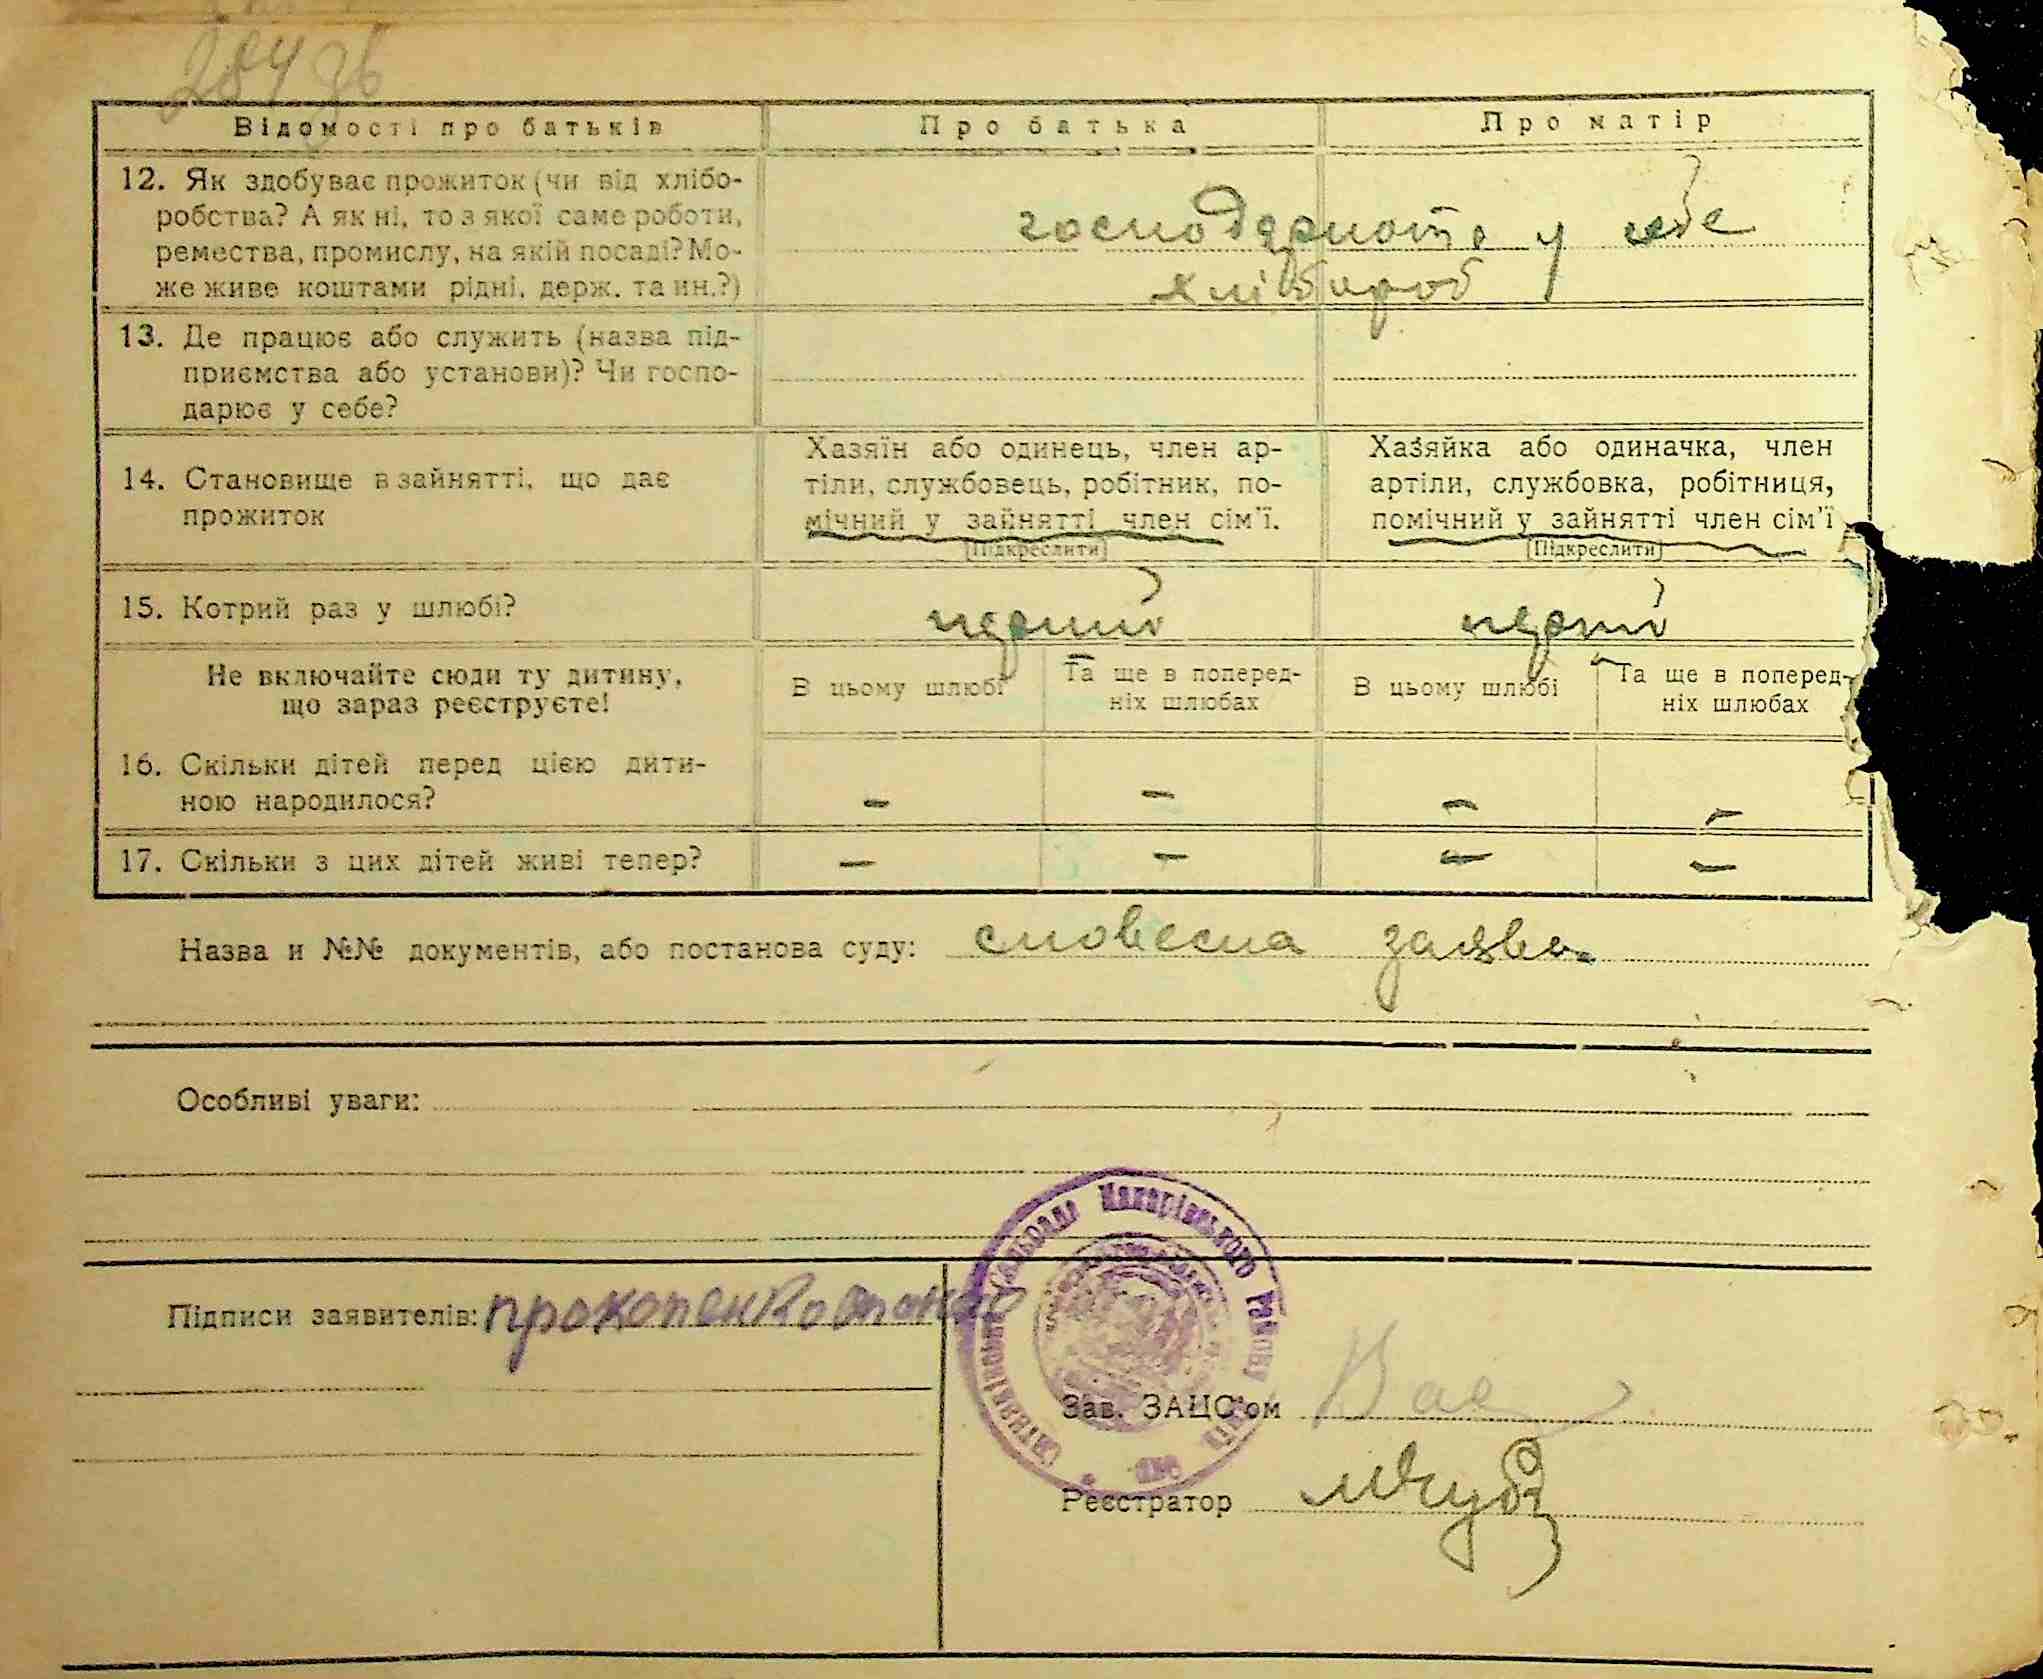 284 зв
Відомості про батьків
Про батька
Про матір
12. Як здобуває прожиток (чи від хлібо-
робства? А як ні, то з якої саме роботи,
ремества, промислу, на якій посаді? Мо-
же живе коштами рідні, держ. та ин.?)
господарюють у себе
хлібороб
13. Де працює або служить (назва під-
приємства або установи)? Чи госпо-
дарює у себе?
14. Становище в зайнятті, що дає
прожиток
Хазяїн або одинець, член ар-
тіли, службовець, робітник, по-
мічний у зайнятті член сім'ї.
Підкреслити
Хазяйка або одиначка, член
артіли, службовка, робітниця,
помічний у зайнятті член сім'ї
Підкреслити
15. Котрий раз у шлюбі?
перший
перший
Не включайте сюди ту дитину,
що зараз реєструєте!
В цьому шлюбі
Та ще в поперед-
ніх шлюбах
В цьому шлюбі
Та ще в поперед-
ніх шлюбах
16. Скільки дітей перед цією дити-
ною народилося?
– – – –
17. Скільки з цих дітей живі тепер?
– – – –
Назва и №№ документів, або постанова суду: словесна заява
Особливі уваги:
Підписи заявителів: прокопенко
сільрада Макарівського району
Зав. ЗАЦС'ом
Реєстратор